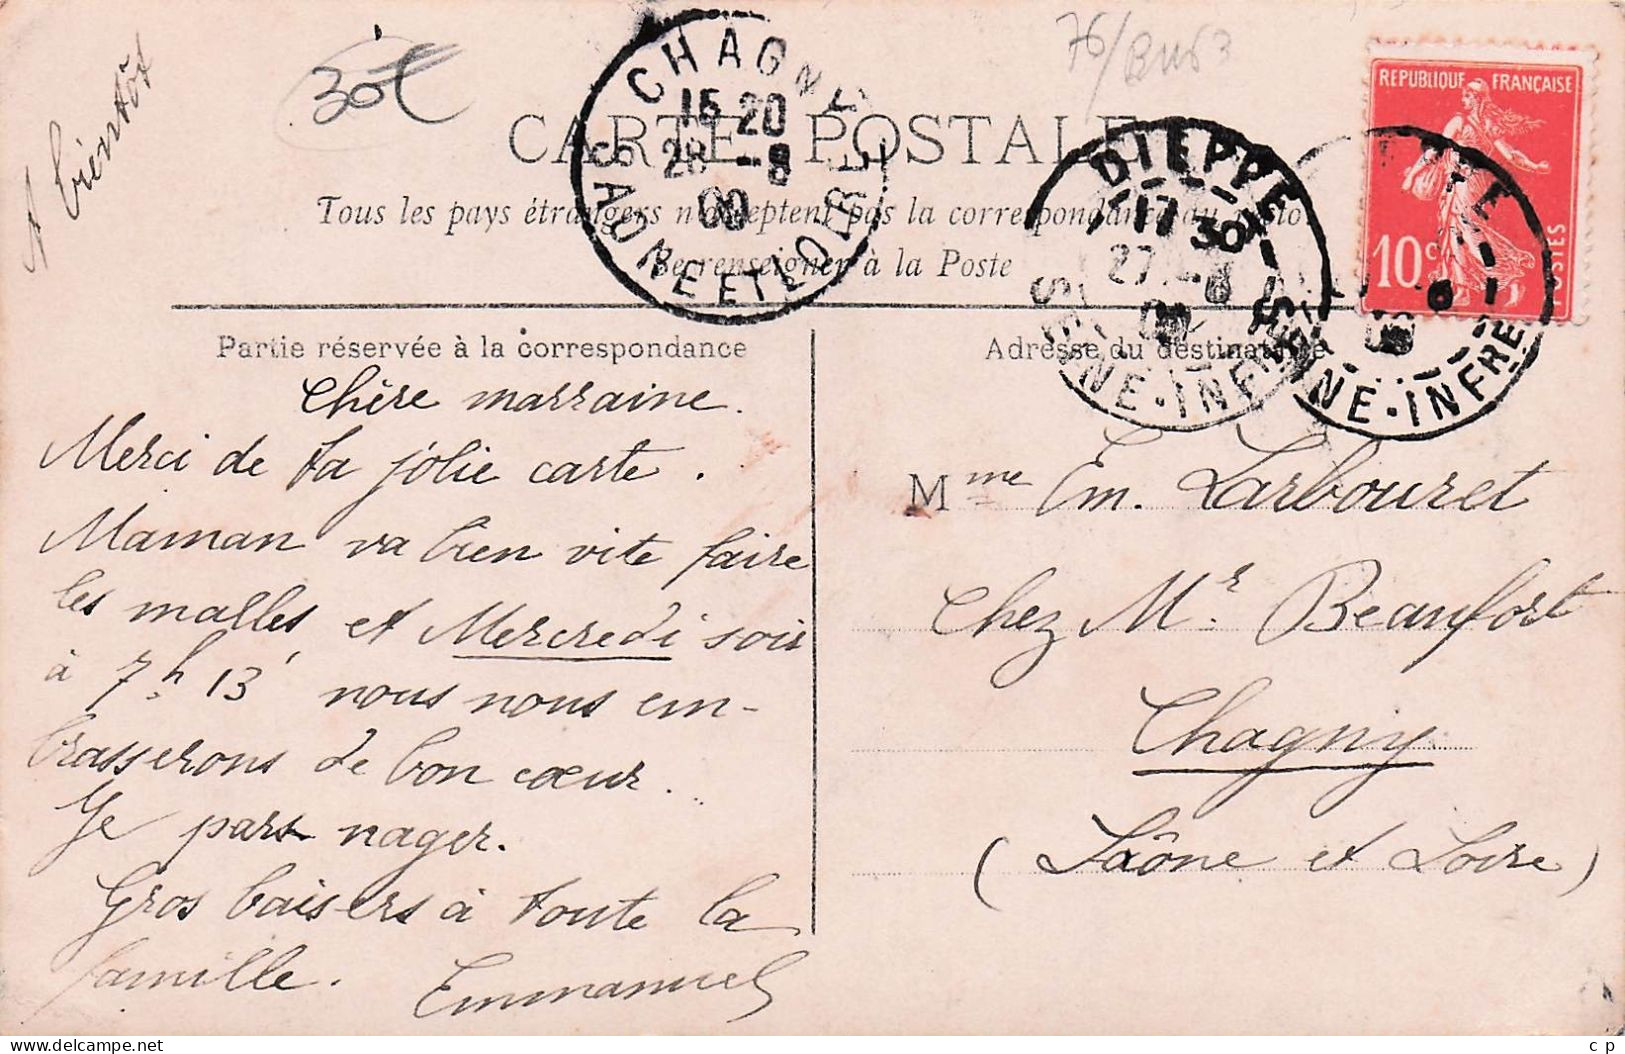 A bientôt
30€
CHAGNY
15 20
28 -8
SAONE ET LOIRE
CARTE POSTALE
Tous les pays étrangers n'acceptent pas la correspondance au recto
Se renseigner à la Poste
DIEPPE
17 30
27 -8
SEINE-INFRE
SEINE-INFRE
REPUBLIQUE FRANÇAISE
10c
POSTES
Partie réservée à la correspondance
Chère marraine.
Merci de ta jolie carte.
Maman va bien vite faire
les malles et Mercredi soir
à 7h 13' nous nous em-
brasserons de bon cœur.
Je pars nager.
Gros baisers à toute la
famille. Emmanuel
Adresse du destinataire
Mme Em. Larbouret
Chez Mr. Beaufort
Chagny
(Saône et Loire)
cp